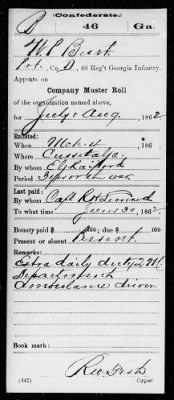 (Confederate.)
B 46 Ga.
W P Burt
Pvt., Co. D, 46 Reg't Georgia Infantry.
Appears on
Company Muster Roll
of the organization named above,
for July & Aug, 1862.
Enlisted:
When Mch 4, 186
Where Cusseta Ga.
By whom
Period 3 yrs or the war
Last paid:
By whom Capt
To what time June 30, 1862.
Bounty paid $ 100; due $ 100
Present or absent Present
Remarks:
Extra daily duty Q. M.
Department
Ambulance driver
Book mark:
(642)
Copyist.